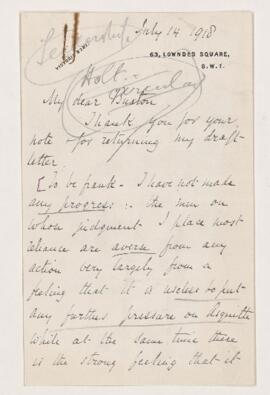 July 14 1918
63, LOWNDES SQUARE,
S.W.1.
Holt
My dear Buxton
Thank you for your
note – for returning my draft-
letter.
[To be frank – I have not made
any progress :- the men on
whose judgment I place most
reliance are averse from any
action very largely from a
feeling that it is useless to put
any further pressure on Asquith
while at the same time there
is the strong feeling that it